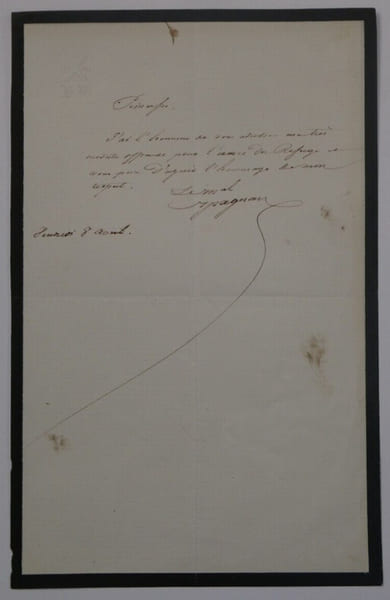 Princesse,
J'ai l'honneur de vous adresser ma très
modeste offrande pour l'œuvre du Refuge et
vous prie d'agréer l'hommage de mon
respect.
Le Mal
Magnan
Vendredi 8 Août.